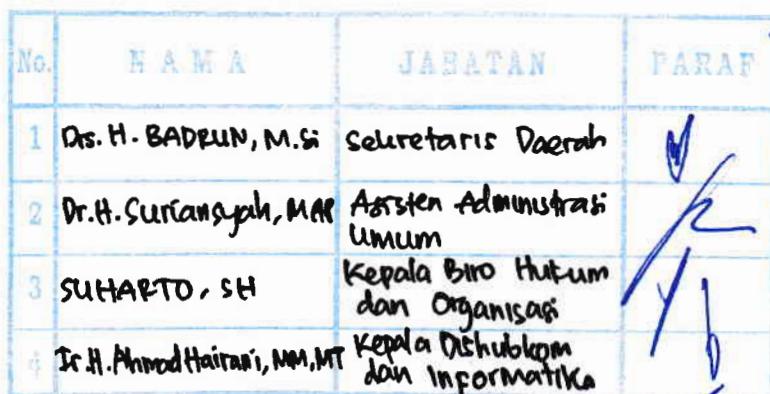 No. NAMA JABATAN PARAF
1 Drs. H. BADRUN, M.Si Sekretaris Daerah
2 Dr. H. Suriansyah, MAP Asisten Administrasi
Umum
3 SUHARTO, SH Kepala Biro Hukum
dan Organisasi
4 Ir. H. Ahmad Hairani, MM, MT Kepala Dishubkom
dan Informatika